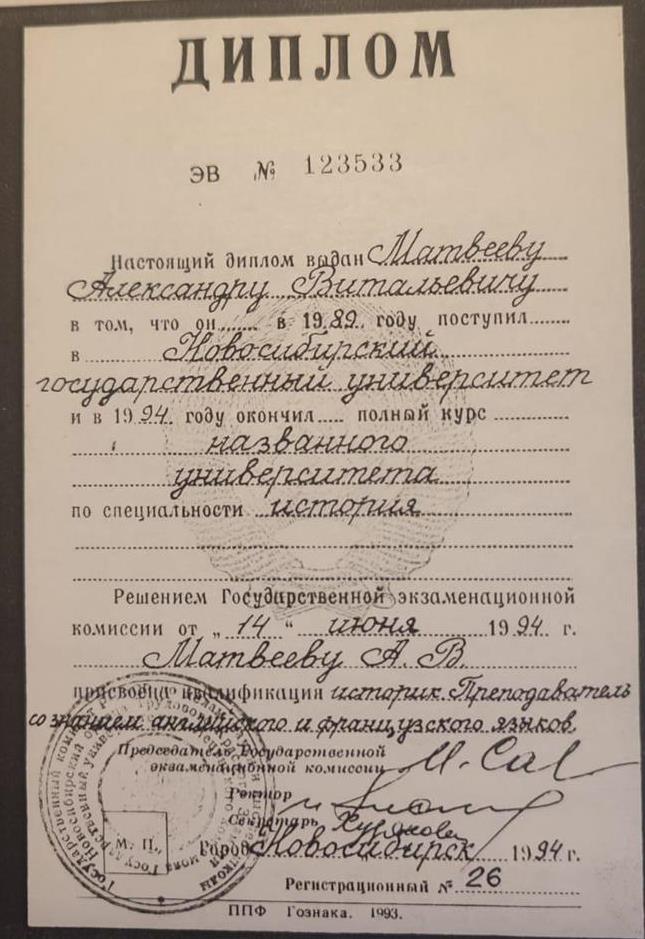 ДИПЛОМ
ЭВ № 123533
Настоящий диплом выдан Матвееву
Александру Витальевичу
в том, что он в 1989 году поступил
в Новосибирский
государственный университет
и в 1994 году окончил полный курс
названного
университета
по специальности история
Решением Государственной экзаменационной
комиссии от „14“ июня 1994 г.
Матвееву А. В.
присвоена квалификация историк. Преподаватель
со знанием английского и французского языков.
Председатель Государственной
экзаменационной комиссии
Ректор
Секретарь
М. П.
Город Новосибирск 1994 г.
Регистрационный № 26
ППФ Гознака. 1993.